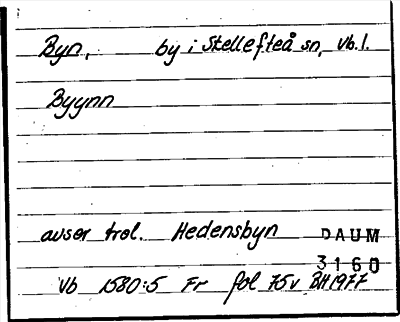 Byn, by i Skellefteå sn, Vb. l.
Byynn
avser trol. Hedensbyn DAUM
3160
Vb 1580:5 Fr fol 75v BH1977